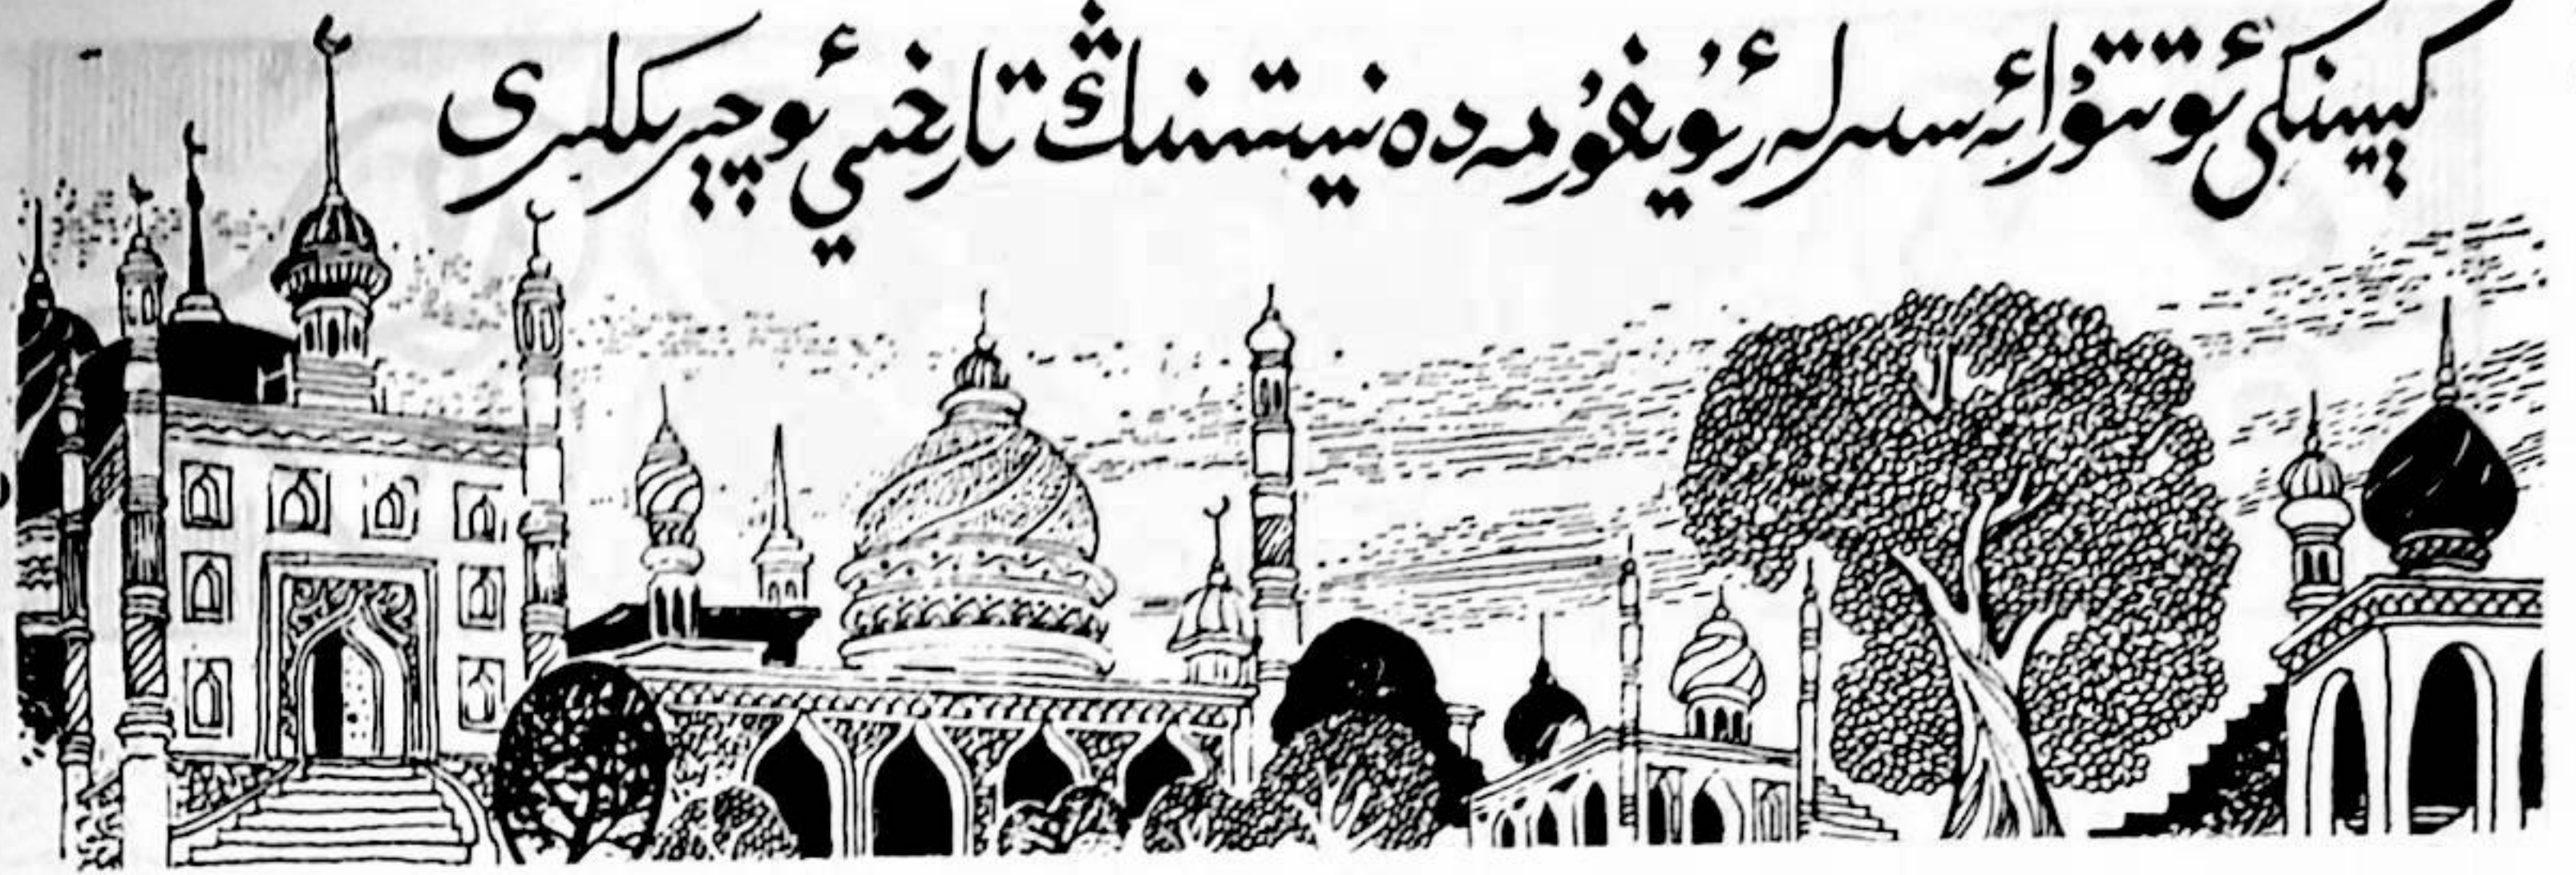 كېيىنكى ئوتتۇرا ئەسىرلەر ئۇيغۇر مەدەنىيىتىنىڭ تارىخىي ئوچېرىكلىرى